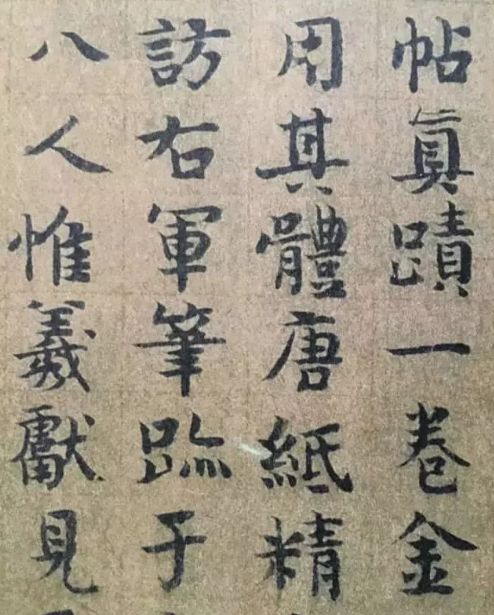 帖真蹟一卷金
用其體唐紙精
訪右軍筆跡于
八人惟羲獻見